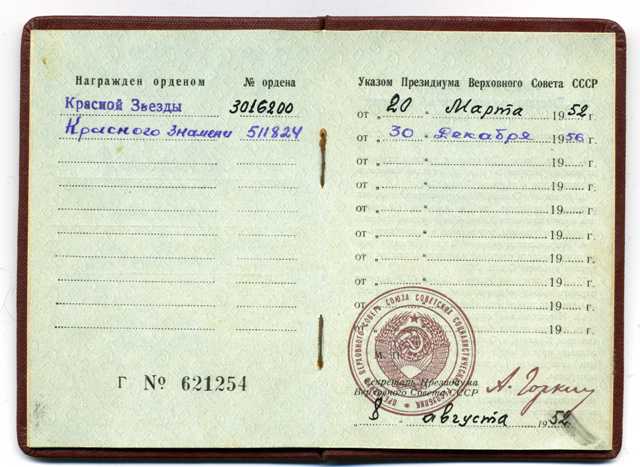 Награжден орденом № ордена
Красной Звезды 3016200
Красного Знамени 511824
Г № 621254
Указом Президиума Верховного Совета СССР
от „ 20 " Марта 1952 г.
от „ 30 " Декабря 1956 г.
от „ " 19 г.
от „ " 19 г.
от „ " 19 г.
от „ " 19 г.
от „ " 19 г.
от „ " 19 г.
от „ " 19 г.
М. П.
Секретарь Президиума
Верховного Совета СССР
А. Горкин
„ 8 " августа 1952